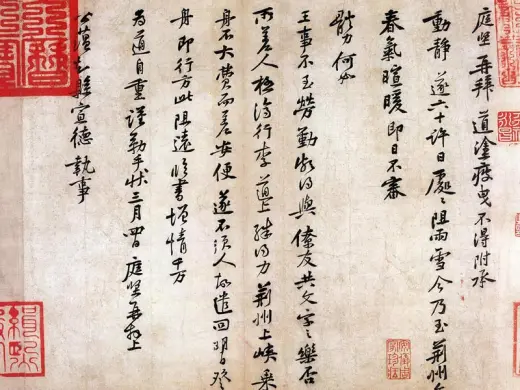 庭堅再拜道塗疲曳不得附承
動靜遂六十許日處處阻雨雪今乃至荊州
春氣暄暖即日不審
體力何如
王事不至勞勤頗得與僚友共文字之樂否
所差人極濟行李道上殊得力荊州上峽乘
舟不大費而差安便遂不須人故遣回明日登
舟即行方此阻遠臨書增情千万
為道自重謹勒手狀三月四日庭堅再拜上
縣宣德執事